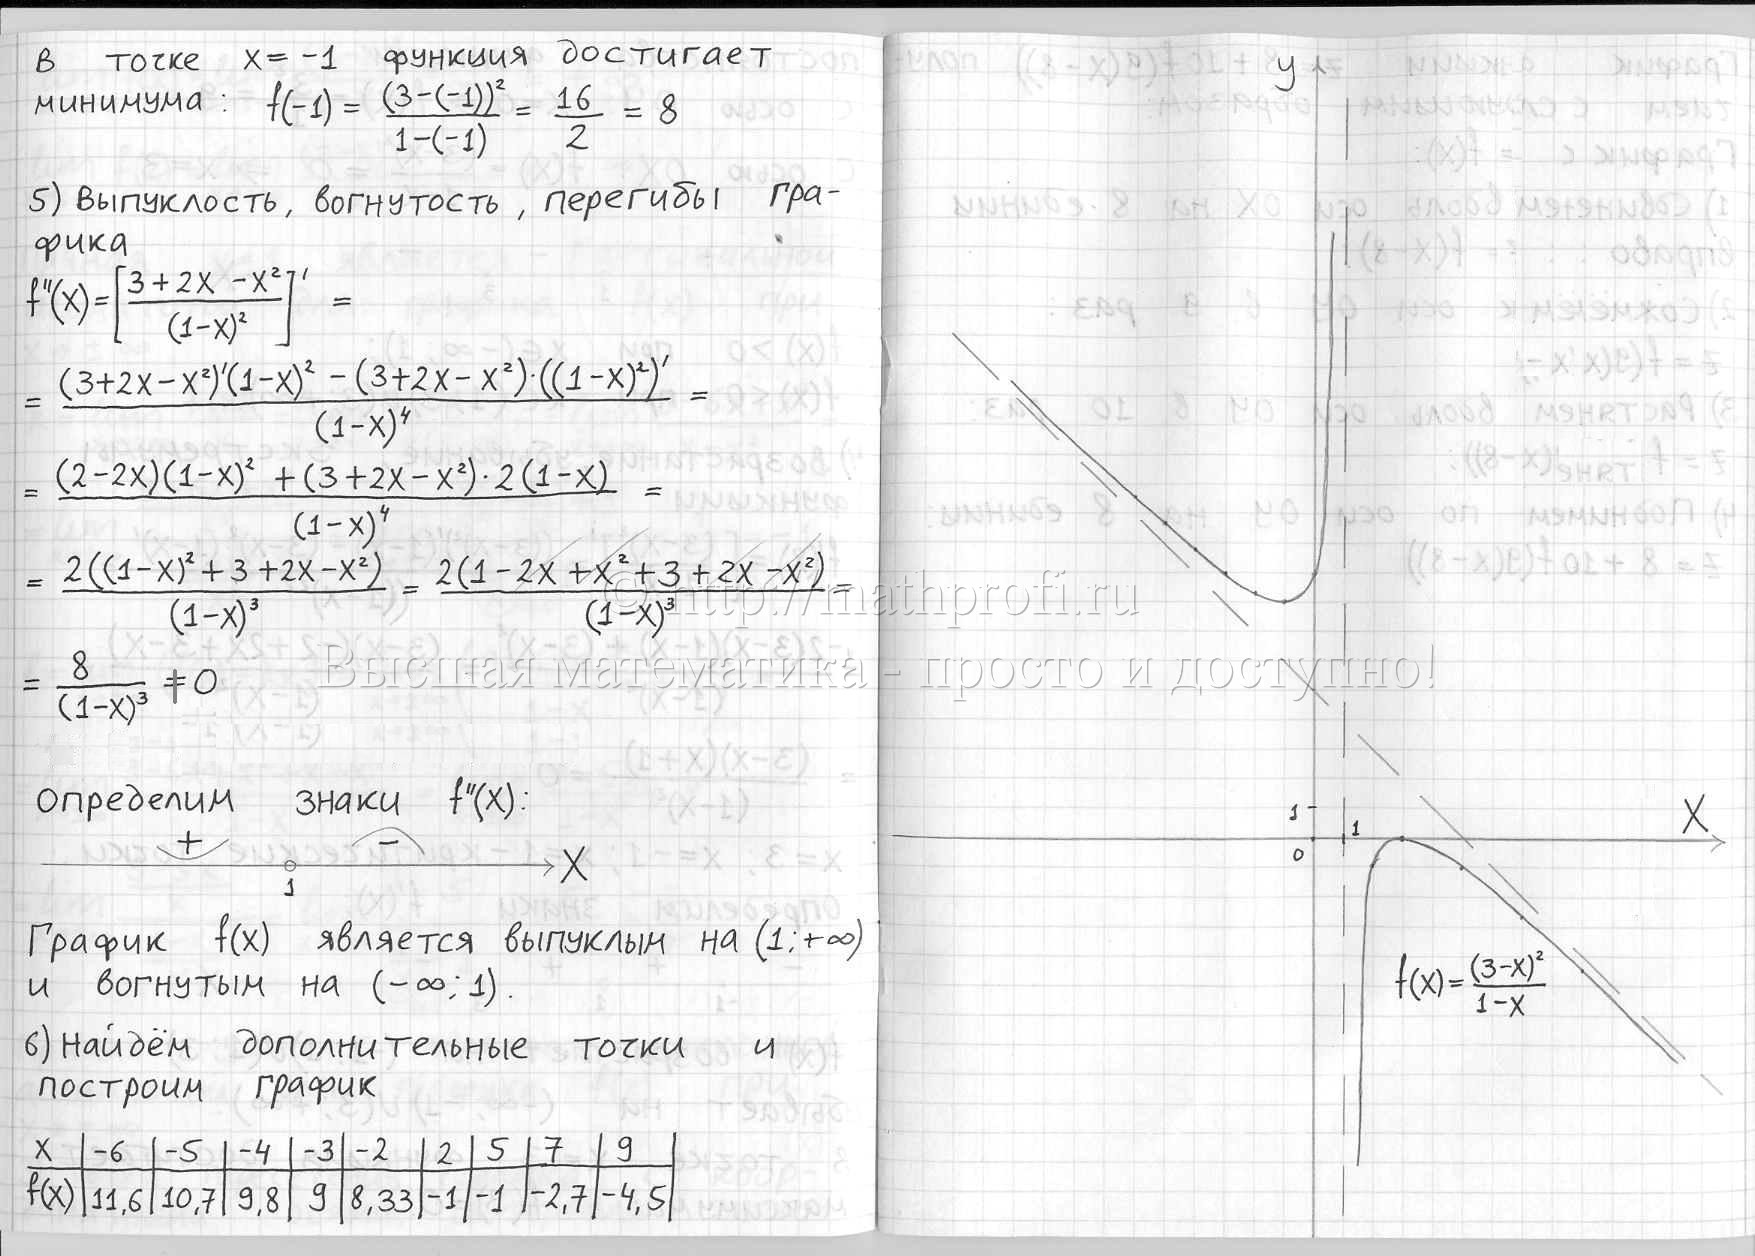 В точке x = -1 функция достигает
минимума: f(-1) = (3-(-1))² / 1-(-1) = 16/2 = 8
5) Выпуклость, вогнутость, перегибы гра-
фика
f''(x) = [3+2x-x² / (1-x)²]' =
= (3+2x-x²)'(1-x)² - (3+2x-x²)·((1-x)²)' / (1-x)⁴ =
= (2-2x)(1-x)² + (3+2x-x²)·2(1-x) / (1-x)⁴ =
= 2((1-x)²+3+2x-x²) / (1-x)³ = 2(1-2x+x²+3+2x-x²) / (1-x)³ =
= 8 / (1-x)³ ≠ 0
Определим знаки f''(x):
+ -
1 X
График f(x) является выпуклым на (1; +∞)
и вогнутым на (-∞; 1).
6) Найдём дополнительные точки и
построим график
x | -6 | -5 | -4 | -3 | -2 | 2 | 5 | 7 | 9
f(x) | 11,6 | 10,7 | 9,8 | 9 | 8,33 | -1 | -1 | -2,7 | -4,5
y
1
X
1
0
f(x) = (3-x)² / 1-x
© http://mathprofi.ru
Высшая математика - просто и доступно!